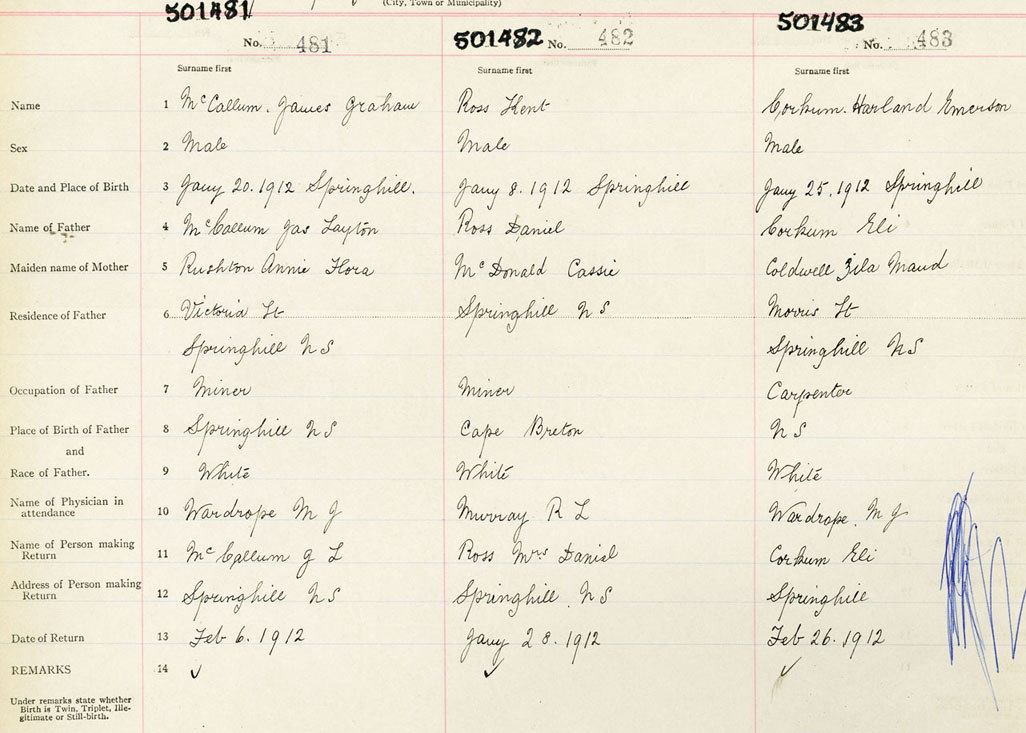 (City, Town or Municipality)
501481 501482 501483
No. 481 No. 482 No. 483
Surname first Surname first Surname first
Name 1 McCallum. James Graham Ross Kent Corkum. Harland Emerson
Sex 2 Male Male Male
Date and Place of Birth 3 Jany 20. 1912 Springhill. Jany 8. 1912 Springhill Jany 25. 1912 Springhill
Name of Father 4 McCallum Jas Layton Ross Daniel Corkum Eli
Maiden name of Mother 5 Rushton Annie Flora McDonald Cassie Coldwell Zila Maud
Residence of Father 6 Victoria St Springhill N S Morris St
Springhill N S Springhill N S
Occupation of Father 7 Miner Miner Carpenter
Place of Birth of Father 8 Springhill N S Cape Breton N S
and
Race of Father. 9 White White White
Name of Physician in
attendance 10 Wardrope M J Murray R L Wardrope. M J
Name of Person making
Return 11 McCallum J L Ross Mrs Daniel Corkum Eli
Address of Person making
Return 12 Springhill N S Springhill. N S Springhill
Date of Return 13 Feb 6. 1912 Jany 28. 1912 Feb 26. 1912
REMARKS 14 ✓ ✓ ✓
Under remarks state whether
Birth is Twin, Triplet, Ille-
gitimate or Still-birth.